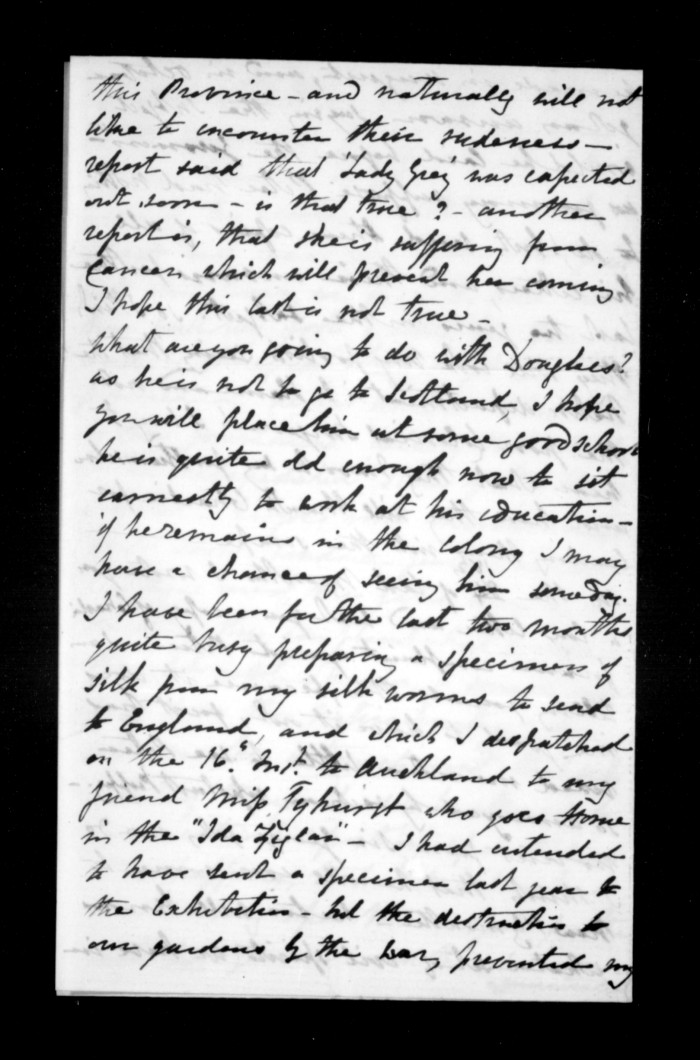 this Province - and naturally will not
like to encounter their rudeness -
report said that Lady Grey was expected
out soon - is that true? - another
report is, that she is suffering from
Cancer, which will prevent her coming
I hope this last is not true -
What are you going to do with Douglas?
as he is not to go to Scotland, I hope
you will place him at some good school
he is quite old enough now to sit
earnestly to work at his education -
if he remains in the Colony I may
have a chance of seeing him someday.
I have been for the last two months
quite busy preparing a specimen of
silk from my silk worms to send
to England, and which I despatched
on the 16th Inst. to Auckland to my
friend Miss Tyhurst who goes Home
in the "Ida Zeigler" - I had intended
to have sent a specimen last year to
the Exhibition - but the destruction to
our gardens by the war, prevented my